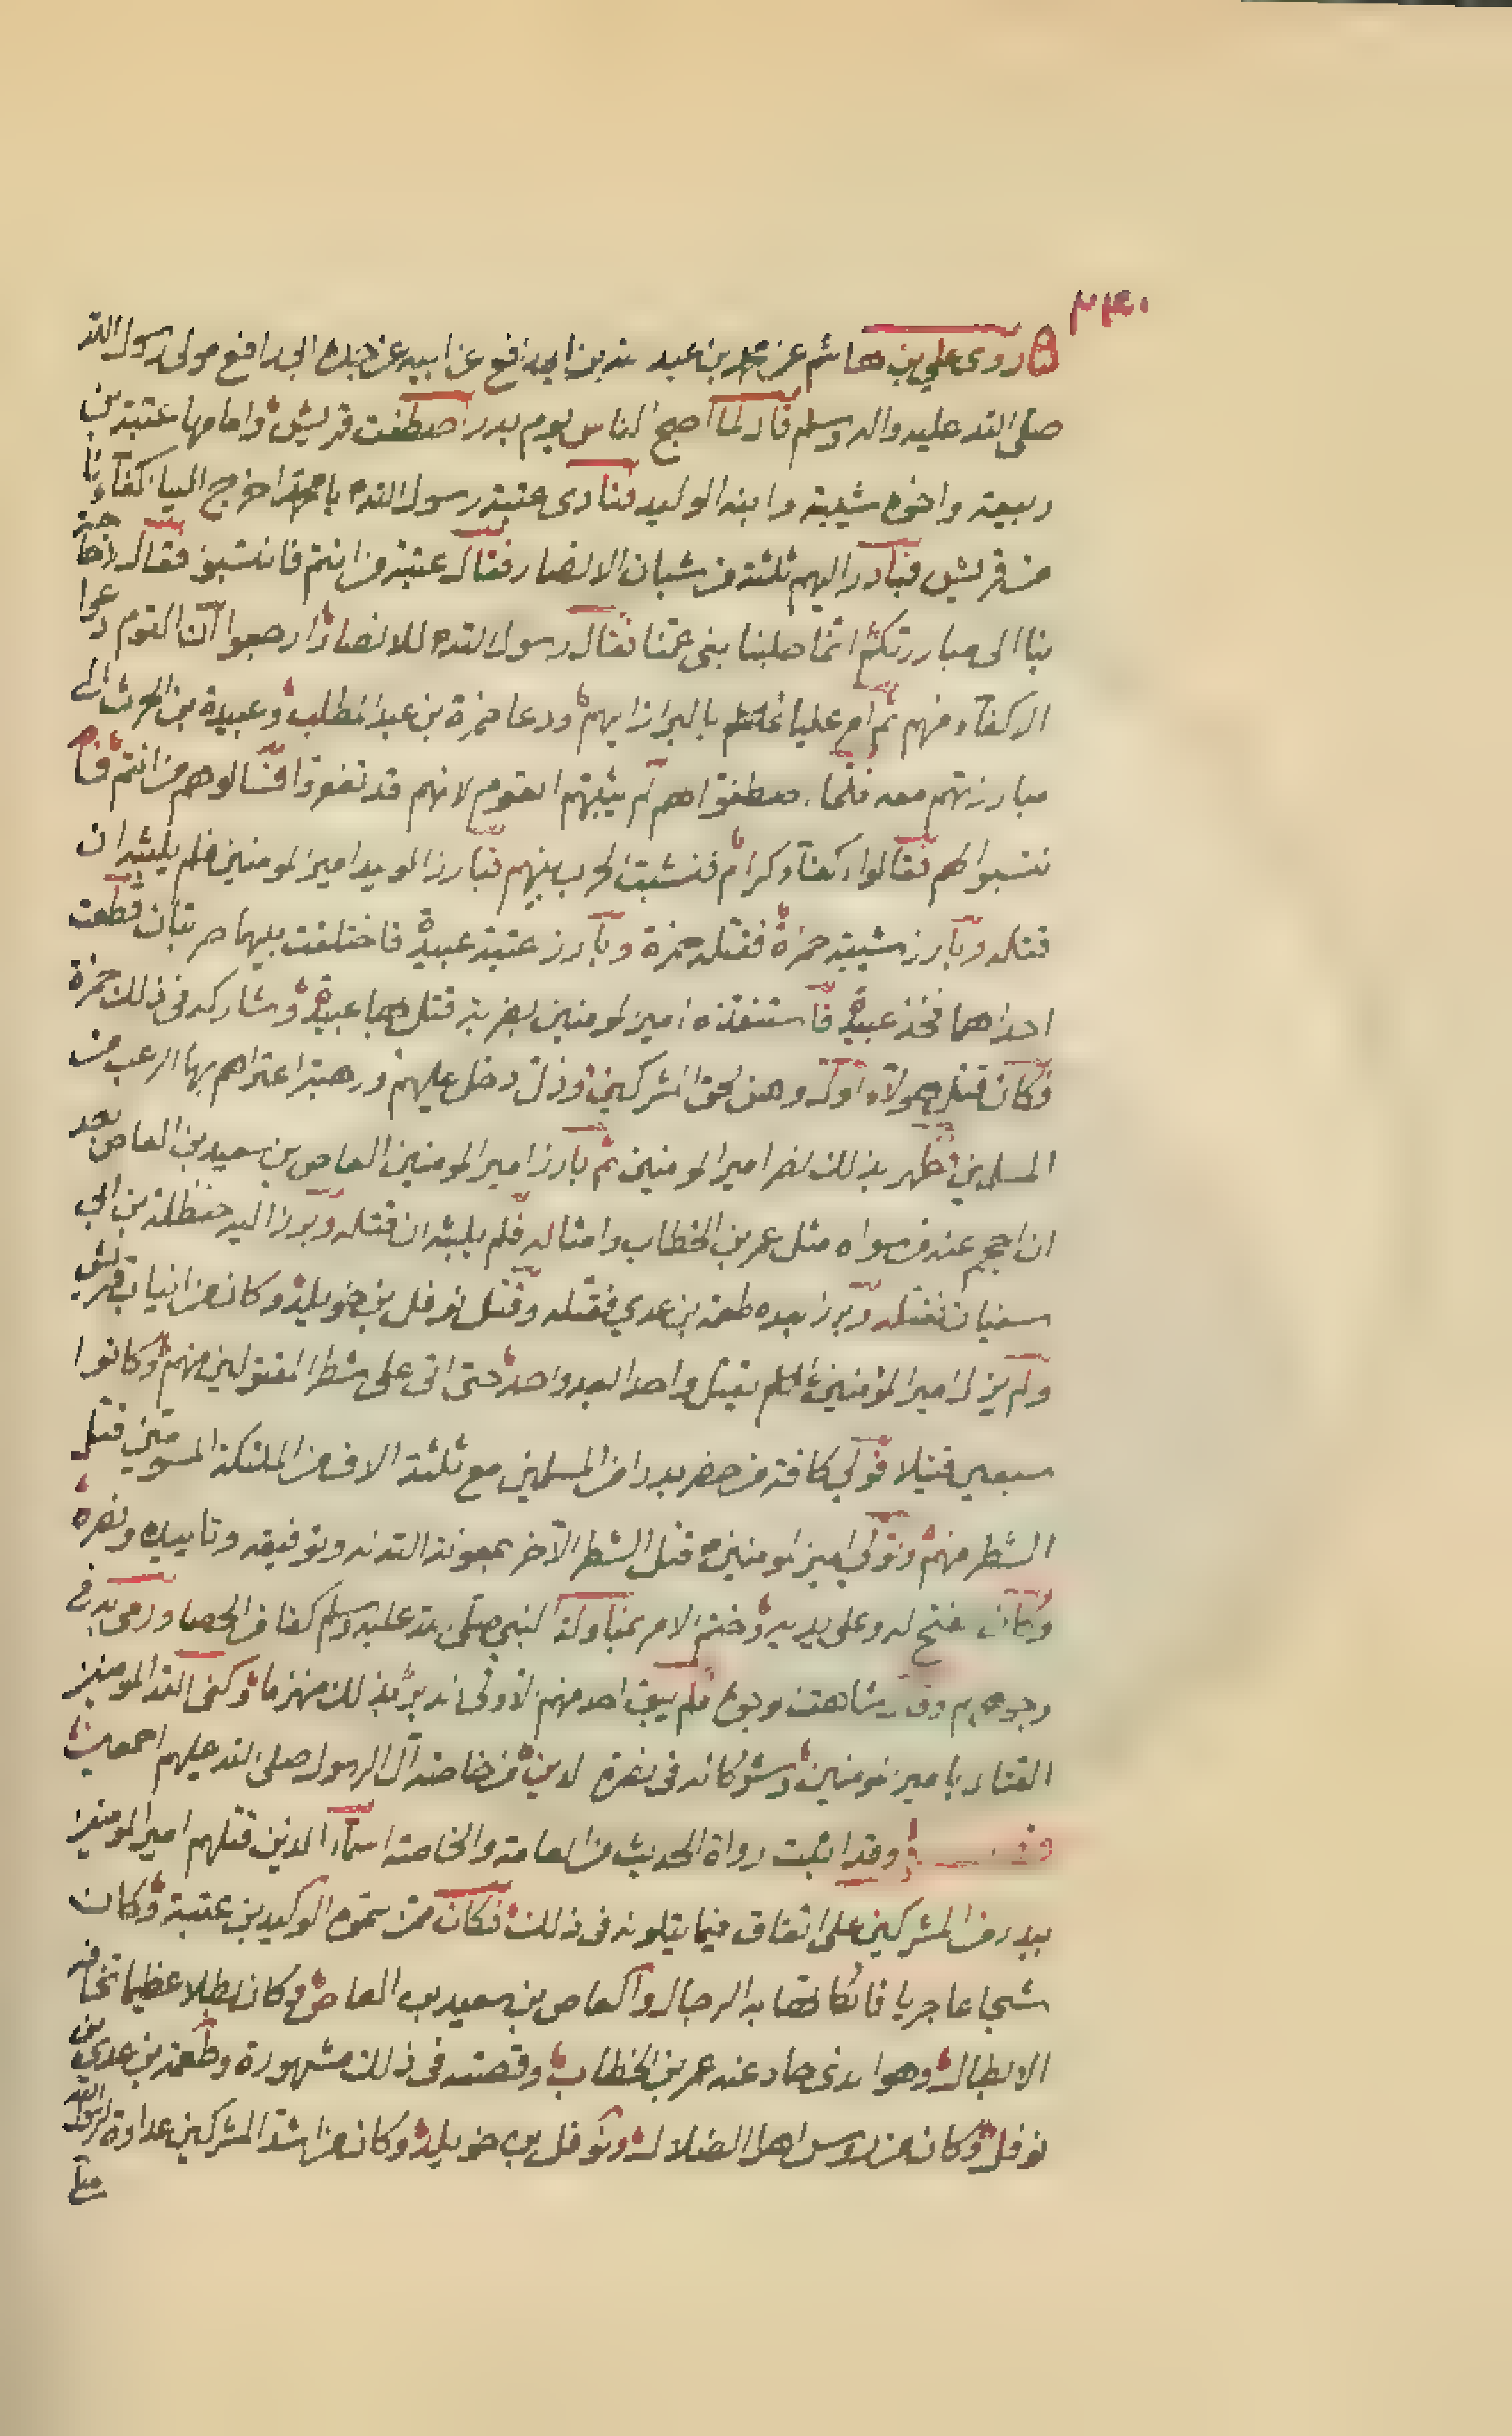 ٢٣٠
روى علي بن هاشم عن محمد بن عبيد الله بن ابي رافع عن ابيه عن جده ابي رافع مولى رسول الله
صلى الله عليه واله وسلم قال لما اصبح الناس يوم بدر اصطفت قريش وامامها عتبة بن
ربيعة واخوه شيبة وابنه الوليد فنادى عتبة رسول الله يا محمد اخرج الينا اكفاءنا
من قريش فبادر اليهم ثلثة من شبان الانصار فقال عتبة من انتم فانتسبوا فقال لا حاجة
بنا الى مبارزتكم انما طلبنا بني عمنا فقال رسول الله للانصار ارجعوا ان القوم دعوا
الاكفاء منهم ثم امر عليا بالبراز اليهم ودعا حمزة بن عبد المطلب وعبيدة بن الحرث الى
مبارزتهم معه فلما اصطفوا لهم لم يثبتهم القوم لانهم قد تغفروا فسالوهم من انتم فا
نتسبوا لهم فقالوا اكفاء كرام فنشبت الحرب بينهم فبارز الوليد امير المومنين فلم يلبثه ان
قتله وبارز شيبة حمزة فقتله حمزة وبارز عتبة عبيدة فاختلفت بينهما ضربتان قطعت
احداهما فخذ عبيدة فاستنقذه امير المومنين بضربة قتل بها عتبة وشاركه في ذلك حمزة
فكان قتل هولاء اول وهن لحق المشركين وذل دخل عليهم ورهبة اعتراهم بها الرعب من
المسلمين وظهر بذلك نصر امير المومنين ثم بارز امير المومنين العاص بن سعيد بن العاص بعد
ان احجم عنه من سواه مثل عمر بن الخطاب وامثاله فلم يلبثه ان قتله وبرز اليه حنظلة بن ابي
سفيان فقتله وبرز بعده طعمة بن عدي فقتله وقتل نوفل بن خويلد وكان من انياب قريش
ولم يزل امير المؤمنين يقتل واحدا بعد واحد حتى اتى على شطر المقتولين منهم وكانوا
سبعين قتيلا فولي كافة من حضر بدرا من المسلمين مع ثلثة الاف من الملئكة المسومين قتل
الشطر منهم وتولى امير المومنين قتل الشطر الاخر بمعونة الله له وتوفيقه وتاييده ونصره
وكان الفتح له وعلى يديه وختم الامر بمناولة النبي صلى الله عليه وسلم كفا من الحصا ورمى به في
وجوههم وقال شاهت الوجوه فلم يبق احد منهم الا ولى الدبر بذلك منهزما وكفى الله المومنين
القتال بامير المومنين وشركائه في نصرة الدين من خاصة آل الرسول صلى الله عليهم اجمعين
فصل وقد اثبت رواة الحديث من العامة والخاصة اسماء الذين قتلهم امير المومنين
ببدر من المشركين على اتفاق فيما يتلونه في ذلك فكان ممن سموه الوليد بن عتبة وكان
شجاعا جريا فاتكا تهابه الرجال والعاص بن سعيد بن العاص وكان بطلا عظيما تخافه
الابطال وهو الذي حاد عنه عمر بن الخطاب وقصته في ذلك مشهورة وطعمة بن عدي بن
نوفل وكان من رؤس اهل الضلال ونوفل بن خويلد وكان من اشد المشركين عداوة لرسول الله